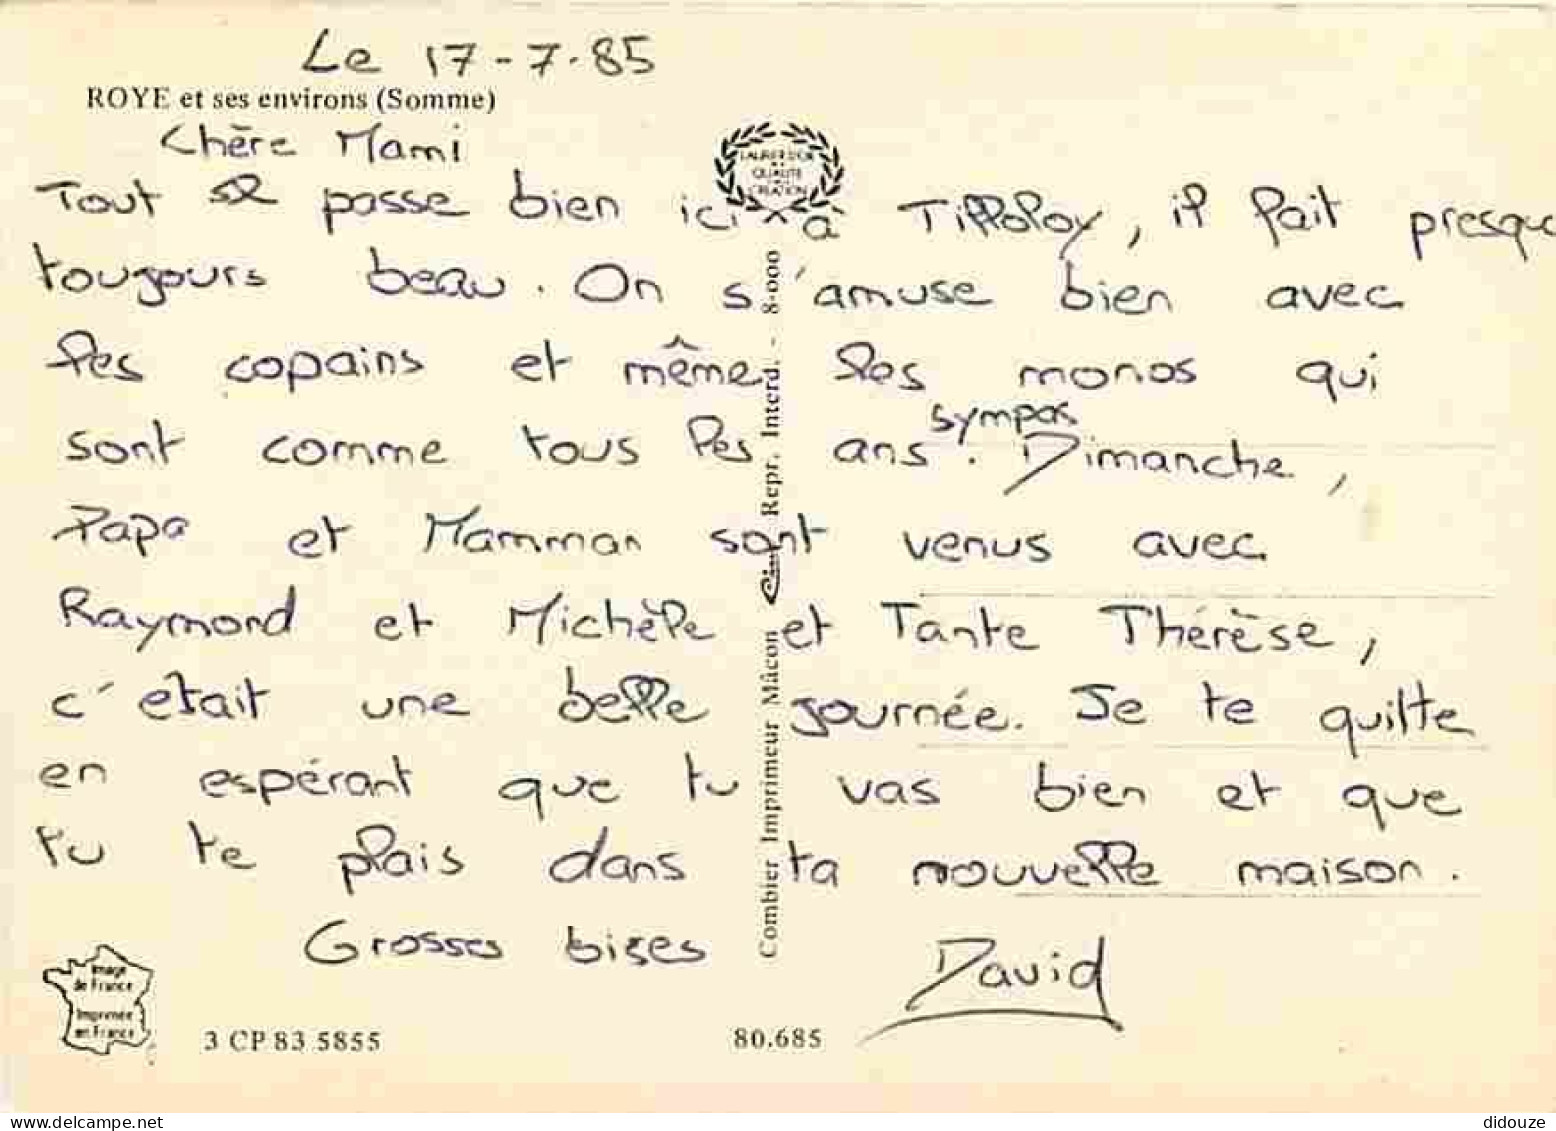 Le 17-7-85
ROYE et ses environs (Somme)
Chère Mami
LAURIER D'OR
QUALITE
CREATION
Tout se passe bien ici à Tilloloy, il fait presque
toujours beau. On s'amuse bien avec
les copains et même les monos qui
sympas
sont comme tous les ans. Dimanche,
Papa et Mamman sont venus avec
Raymond et Michèle et Tante Thérèse,
c'etait une belle journée. Je te quitte
en espérant que tu vas bien et que
tu te plais dans ta nouvelle maison.
Grosses bises David
Combier Imprimeur Mâcon Repr. Interd. - 8-000
Image
de France
Imprimée
en France
3 CP 83 5855
80.685
didouze